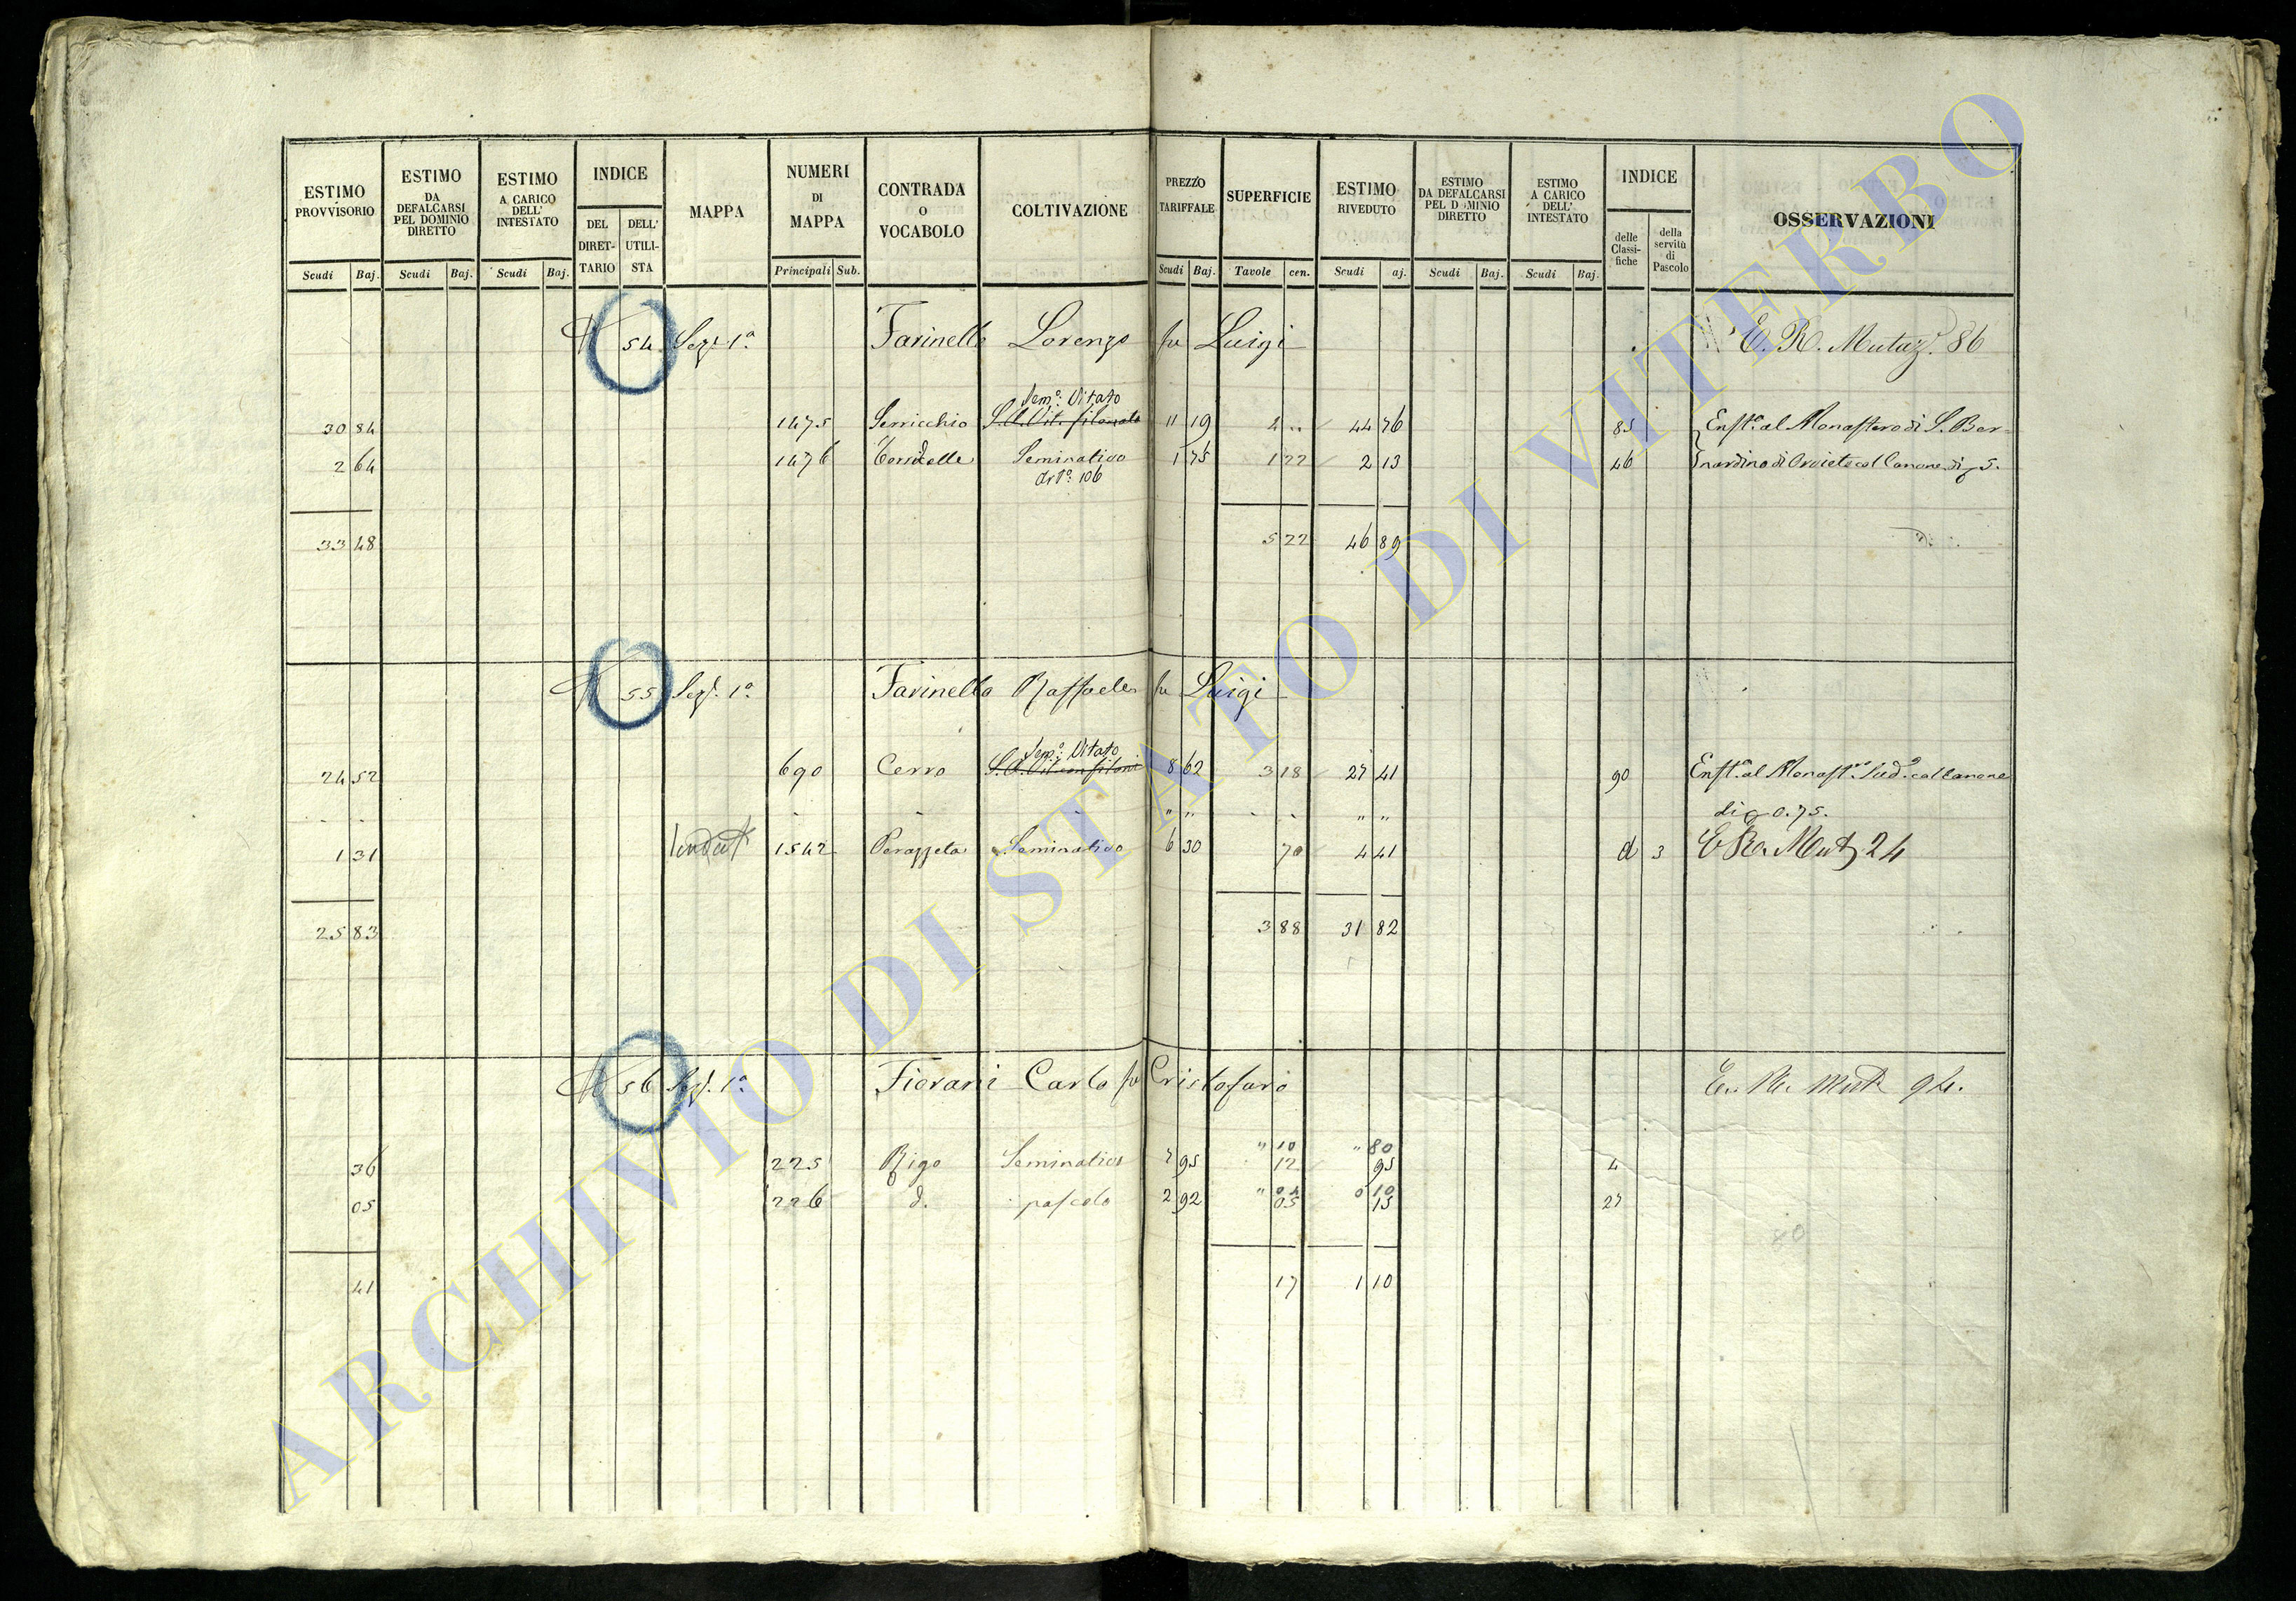 ESTIMO PROVVISORIO Scudi Baj.
ESTIMO DA DEFALCARSI PEL DOMINIO DIRETTO Scudi Baj.
ESTIMO A CARICO DELL' INTESTATO Scudi Baj.
INDICE DEL DIRETTARIO DELL' UTILISTA
MAPPA
NUMERI DI MAPPA Principali Sub.
CONTRADA O VOCABOLO
COLTIVAZIONE
PREZZO TARIFFALE Scudi Baj.
SUPERFICIE Tavole cen.
ESTIMO RIVEDUTO Scudi aj.
ESTIMO DA DEFALCARSI PEL D MINIO DIRETTO Scudi Baj.
ESTIMO A CARICO DELL' INTESTATO Scudi Baj.
INDICE delle Classifiche della servitù di Pascolo
OSSERVAZIONI
54 Sez. 1a Farinelli Lorenzo fu Luigi E. R. Mutaz. 86
Semo. Vitato
30 84 1475 Serricchio 11 19 4 .. 44 76 85 Enfta. al Monastero di S. Ber-
2 64 1476 Seminativo 1 75 1 22 2 13 46 nardino di Orvieto col Canone di 5.
Arto. 106
33 48 5 22 46 89
55 Sez. 1a Farinelli Raffaele fu Luigi
Semo. Vitato
24 52 690 Cerro 8 62 3 18 27 41 90 Enfta. al Monast. Sudo. col Canone
" " " " di 0.75.
1 31 1542 Perazzeta Seminativo 6 30 70 4 41 d 3 E R. Mut 24
25 83 3 88 31 82
56 Sez. 1a Fiorani Carlo fu Cristofaro E. R. Mut 94.
" 10 " 80
36 225 Rigo Seminativo 7 95 12 95 4
" 04 0 10
05 226 d. pascolo 2 92 05 15 27
80
41 17 1 10
ARCHIVIO DI STATO DI VITERBO